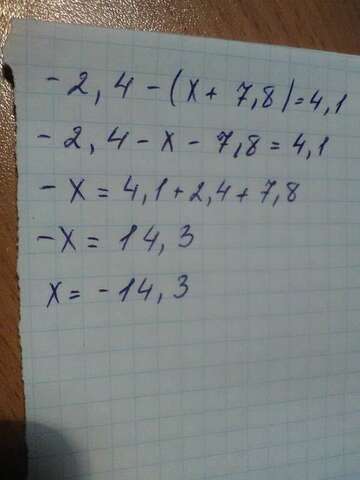 -2,4-(x+7,8)=4,1
-2,4-x-7,8=4,1
-x=4,1+2,4+7,8
-x=14,3
x=-14,3